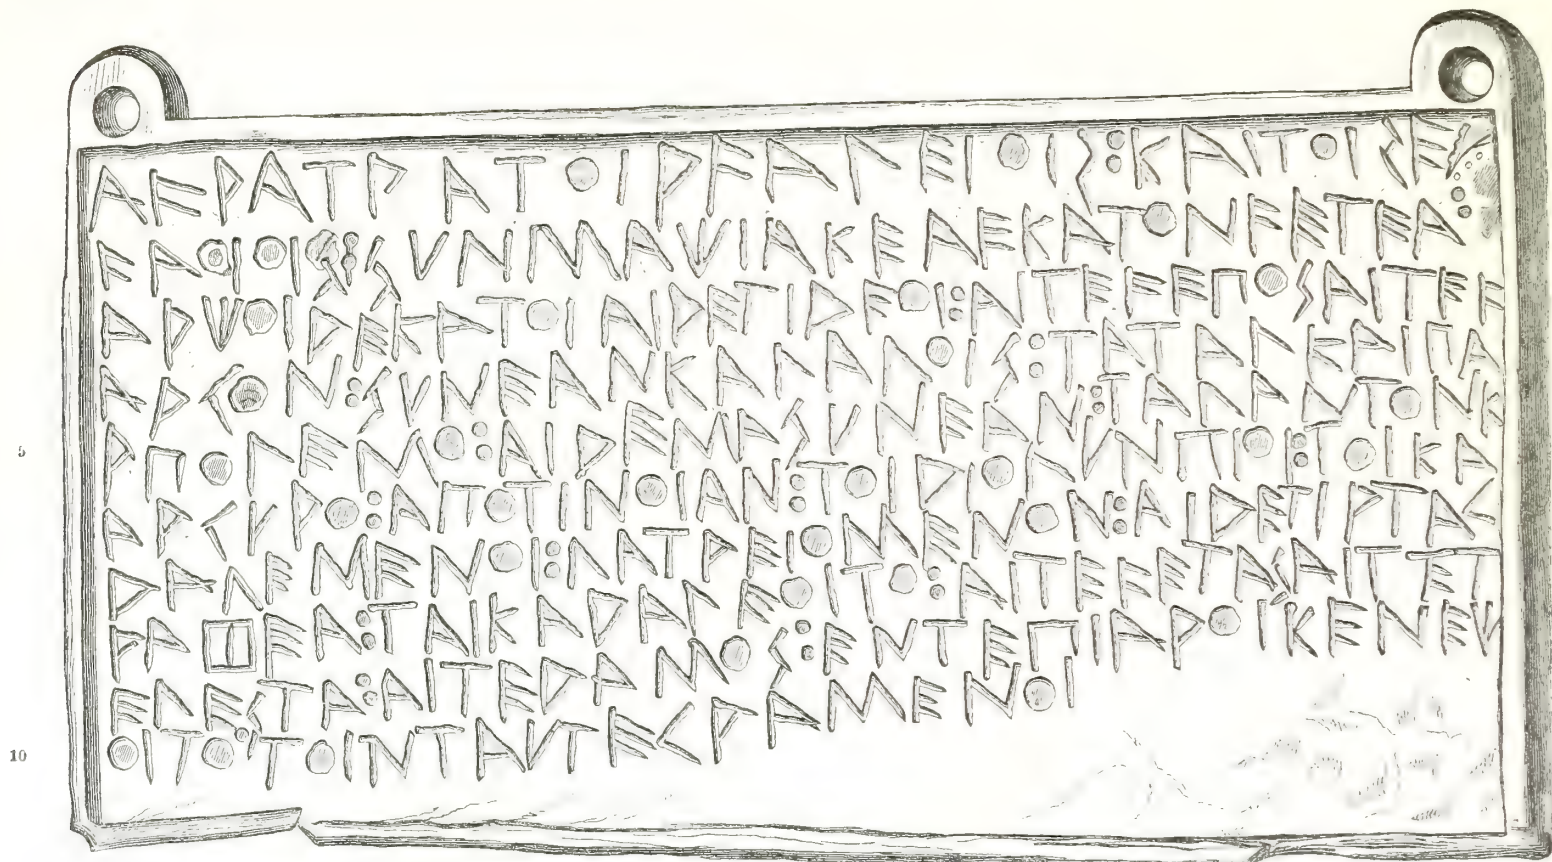 ΑϜΡΑΤΡΑΤΟΙΡϜΑΛΕΙΟΙΣ:ΚΑΙΤΟΙΣΕΡ
ϜΑΟΙΟΙΣ:ΣΥΝΜΑΧΙΑΚΕΑΕΚΑΤΟΝϜΕΤΕΑ:
ΑΡΧΟΙΔΕΚΑΤΟΙΑΙΔΕΤΙΔΕΟΙ:ΑΙΤΕϜΕΠΟΣΑΙΤΕϜ
ΑΡΓΟΝ:ΣΥΝΕΑΝΚΑΛΑΛΟΙΣ:ΤΑΤΑΛΚΑΙΠΑ
5 ΡΠΟΛΕΜΟ:ΑΙΔΕΜΑΣΥΝΕΑΝ:ΤΑΛΑΝΤΟΝΚ
ΑΡΓΥΡΟ:ΑΠΟΤΙΝΟΙΑΝ:ΤΟΙΔΙΟΛΥΝΠΙΟΙ:ΤΟΙΚΑ
ΔΑΛΕΜΕΝΟΙ:ΛΑΤΡΕΙΟΜΕΝΟΝ:ΑΙΔΕΤΙΡΤΑΓ
ΡΑΦΕΑ:ΤΑΙΚΑΔΑΛΕΟΙΤΟ:ΑΙΤΕϜΕΤΑΣΑΙΤΕΤ
ΕΛΕΣΤΑ:ΑΙΤΕΔΑΜΟΣ:ΕΝΤΕΠΙΑΡΟΙΚΕΝΕΧ
10 ΟΙΤΟΙΤΟΙΝΤΑΥΤΕΓΡΑΜΕΝΟΙ